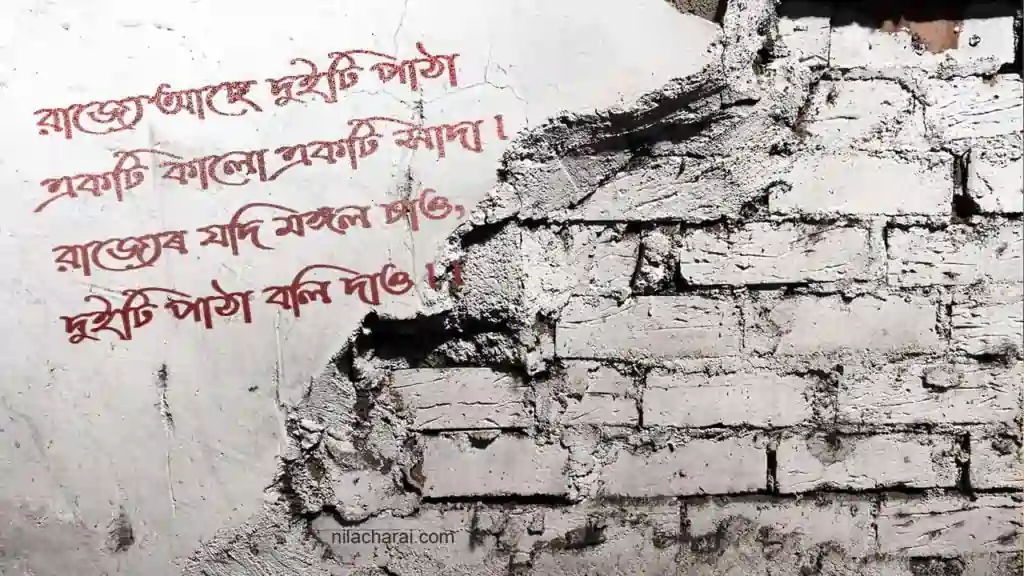 ৰাজ্যে আছে দুইটি পাঠা
একটি কালো একটি সাদা ।
ৰাজ্যেৰ যদি মঙ্গল চাও,
দুইটি পাঠা বলি দাও ।।
nilacharai.com